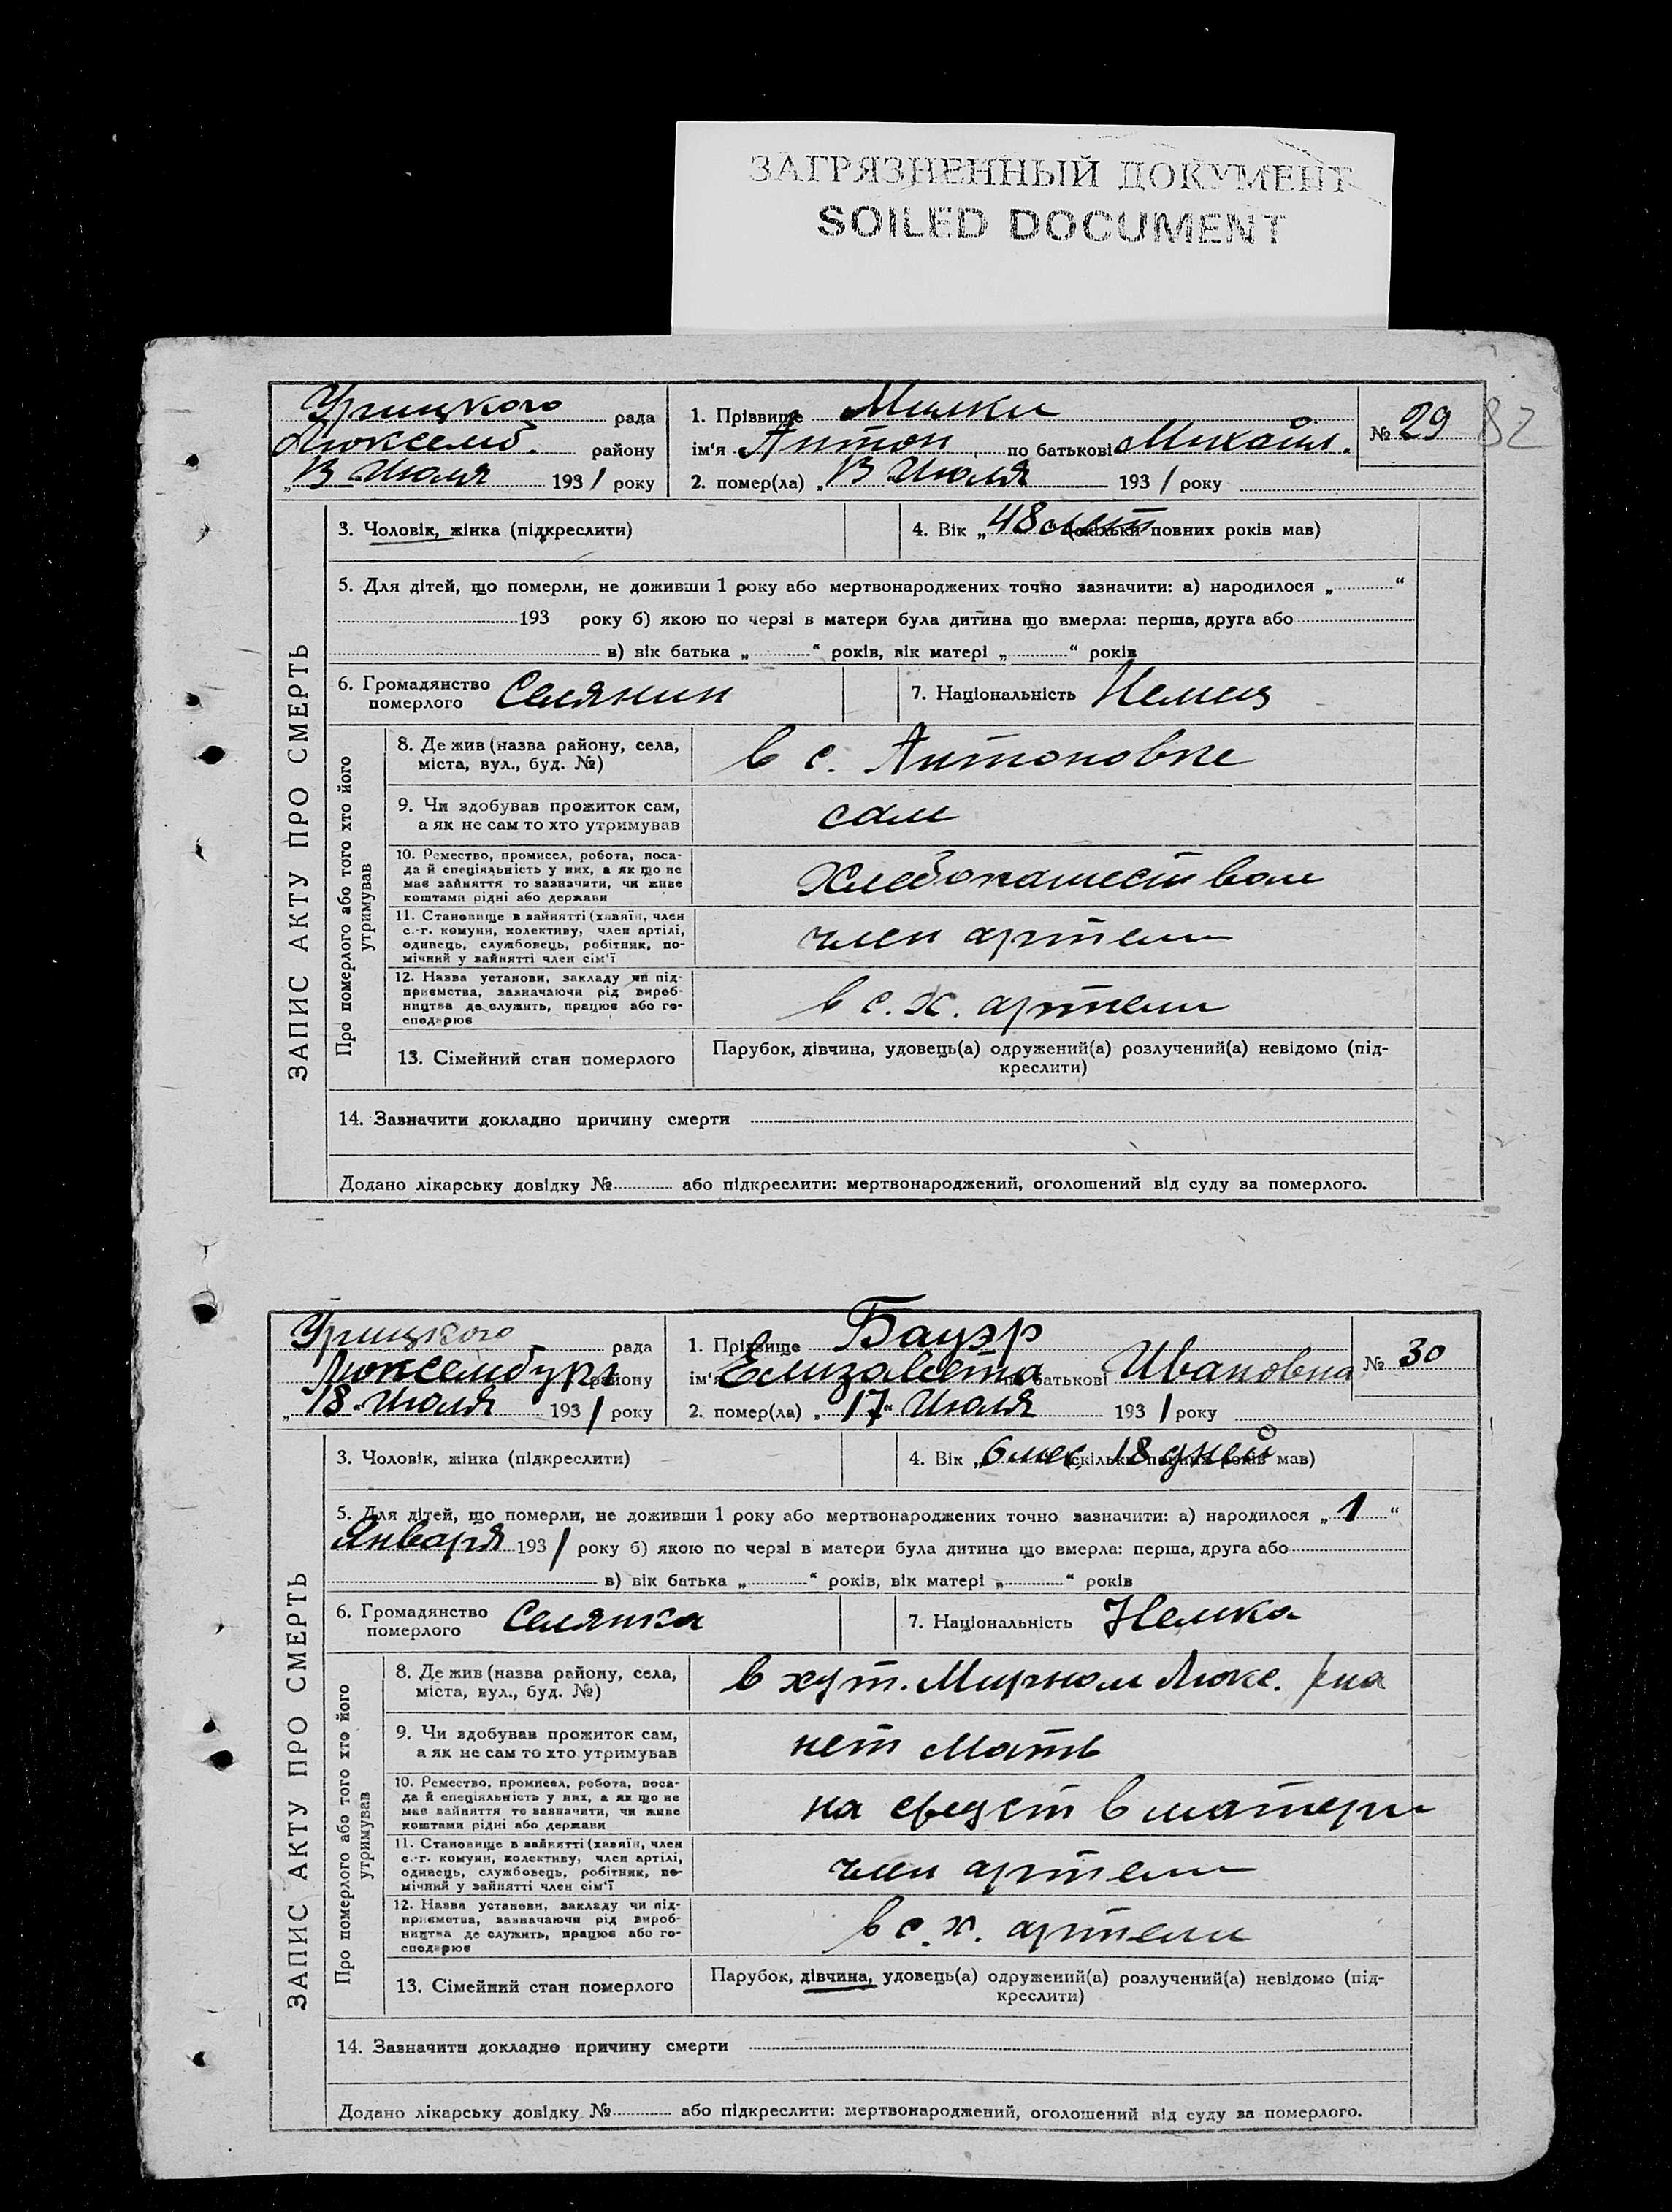 ЗАГРЯЗНЕННЫЙ ДОКУМЕНТ
SOILED DOCUMENT
82
Урицкого рада
Люксемб. району
„13 Июля 1931 року
1. Прізвище
ім‘я Антон по батькові Михайл.
2. помер(ла) „13 Июля 1931 року
№ 29
ЗАПИС АКТУ ПРО СМЕРТЬ
3. Чоловік, жінка (підкреслити)
4. Вік „48 лет (скільки повних років мав)
5. Для дітей, що померли, не доживши 1 року або мертвонароджених точно зазначити: а) народилося „ “
193 року б) якою по черзі в матери була дитина що вмерла: перша, друга або
в) вік батька „ “ років, вік матері „ “ років
6. Громадянство померлого Селянин
7. Національність Немец
Про померлого або того хто його утримував
8. Де жив (назва району, села,
міста, вул., буд. №)
в с. Антоновке
9. Чи здобував прожиток сам,
а як не сам то хто утримував
сам
10. Ремество, промисел, робота, поса-
да й спеціяльність у них, а як що не
має зайняття то зазначити, чи живе
коштами рідні або держави
Хлебопашеством
11. Становище в зайнятті (хазяїн, член
с.-г. комуни, колективу, член артілі,
одинець, службовець, робітник, по-
мічний у зайнятті член сім‘ї
член артели
12. Назва установи, закладу чи під-
приємства, зазначаючи рід вироб-
ництва де служить, працює або го-
сподарює
в с. х. артели
13. Сімейний стан померлого
Парубок, дівчина, удовець(а) одружений(а) розлучений(а) невідомо (під-
креслити)
14. Зазначити докладно причину смерти
Додано лікарську довідку № або підкреслити: мертвонароджений, оголошений від суду за померлого.
Урицкого рада
Люксембург району
„18 Июля 1931 року
1. Прізвище Бауэр
ім‘я Елизавета по батькові Ивановна
2. помер(ла) „17“ Июля 1931 року
№ 30
ЗАПИС АКТУ ПРО СМЕРТЬ
3. Чоловік, жінка (підкреслити)
4. Вік „6 мес 18 дней (скільки повних років мав)
5. Для дітей, що померли, не доживши 1 року або мертвонароджених точно зазначити: а) народилося „1“
Января 1931 року б) якою по черзі в матери була дитина що вмерла: перша, друга або
в) вік батька „ “ років, вік матері „ “ років
6. Громадянство померлого Селянка
7. Національність Немка
Про померлого або того хто його утримував
8. Де жив (назва району, села,
міста, вул., буд. №)
в хут. Мирном Люкс. р-на
9. Чи здобував прожиток сам,
а як не сам то хто утримував
нет мать
10. Ремество, промисел, робота, поса-
да й спеціяльність у них, а як що не
має зайняття то зазначити, чи живе
коштами рідні або держави
на средств матери
11. Становище в зайнятті (хазяїн, член
с.-г. комуни, колективу, член артілі,
одинець, службовець, робітник, по-
мічний у зайнятті член сім‘ї
член артели
12. Назва установи, закладу чи під-
приємства, зазначаючи рід вироб-
ництва де служить, працює або го-
сподарює
в с. х. артели
13. Сімейний стан померлого
Парубок, дівчина, удовець(а) одружений(а) розлучений(а) невідомо (під-
креслити)
14. Зазначити докладно причину смерти
Додано лікарську довідку № або підкреслити: мертвонароджений, оголошений від суду за померлого.